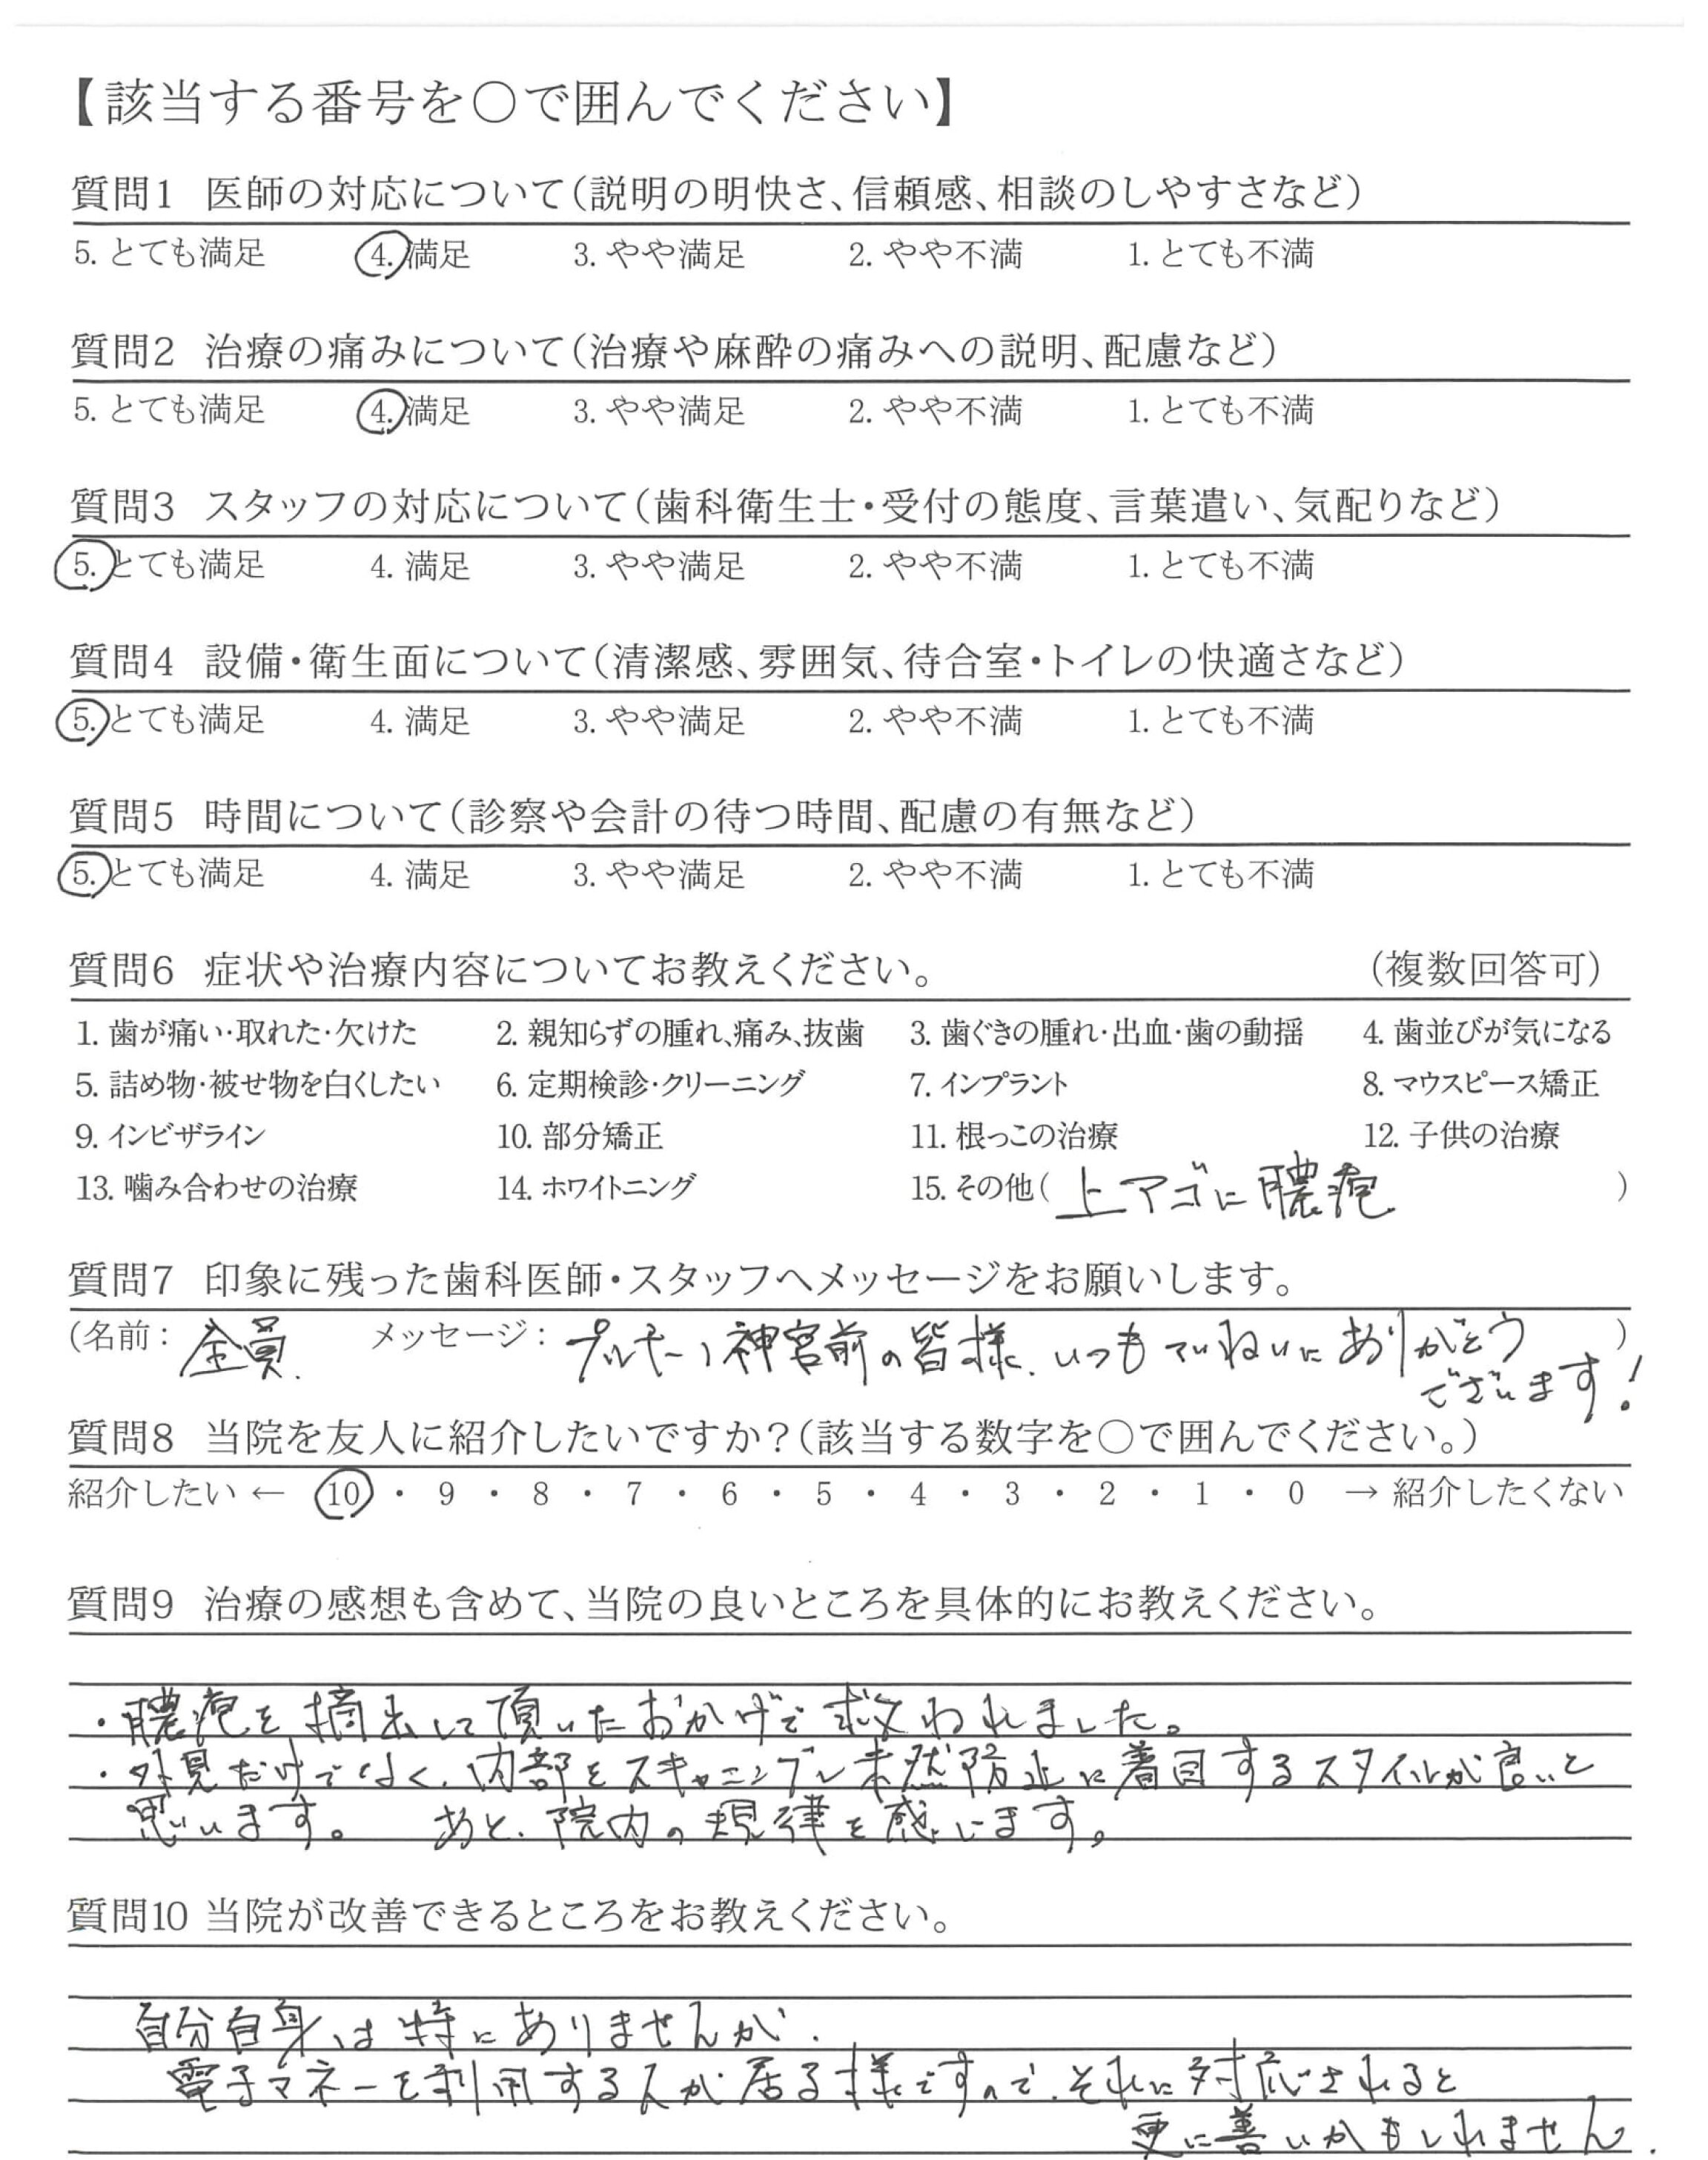 【該当する番号を〇で囲んでください】
質問1 医師の対応について(説明の明快さ、信頼感、相談のしやすさなど)
5. とても満足 4. 満足 3. やや満足 2. やや不満 1. とても不満
質問2 治療の痛みについて(治療や麻酔の痛みへの説明、配慮など)
5. とても満足 4. 満足 3. やや満足 2. やや不満 1. とても不満
質問3 スタッフの対応について(歯科衛生士・受付の態度、言葉遣い、気配りなど)
5. とても満足 4. 満足 3. やや満足 2. やや不満 1. とても不満
質問4 設備・衛生面について(清潔感、雰囲気、待合室・トイレの快適さなど)
5. とても満足 4. 満足 3. やや満足 2. やや不満 1. とても不満
質問5 時間について(診察や会計の待つ時間、配慮の有無など)
5. とても満足 4. 満足 3. やや満足 2. やや不満 1. とても不満
質問6 症状や治療内容についてお教えください。 (複数回答可)
1. 歯が痛い・取れた・欠けた 2. 親知らずの腫れ、痛み、抜歯 3. 歯ぐきの腫れ・出血・歯の動揺 4. 歯並びが気になる
5. 詰め物・被せ物を白くしたい 6. 定期検診・クリーニング 7. インプラント 8. マウスピース矯正
9. インビザライン 10. 部分矯正 11. 根っこの治療 12. 子供の治療
13. 噛み合わせの治療 14. ホワイトニング 15. その他( 上アゴに膿疱 )
質問7 印象に残った歯科医師・スタッフへメッセージをお願いします。
(名前: 全員. メッセージ: 神宮前の皆様、いつもていねいにありがとう )
ございます!
質問8 当院を友人に紹介したいですか?(該当する数字を〇で囲んでください。)
紹介したい ← 10 ・ 9 ・ 8 ・ 7 ・ 6 ・ 5 ・ 4 ・ 3 ・ 2 ・ 1 ・ 0 → 紹介したくない
質問9 治療の感想も含めて、当院の良いところを具体的にお教えください。
・膿疱を摘出して頂いたおかげで救われました。
・外見だけでなく、内部をスキャニングし未然防止に着目するスタイルが良いと
思います。 あと、院内の規律を感じます。
質問10 当院が改善できるところをお教えください。
自分自身は特にありませんが、
電子マネーを利用する人が居る様ですので、それに対応されると
更に善いかもしれません.